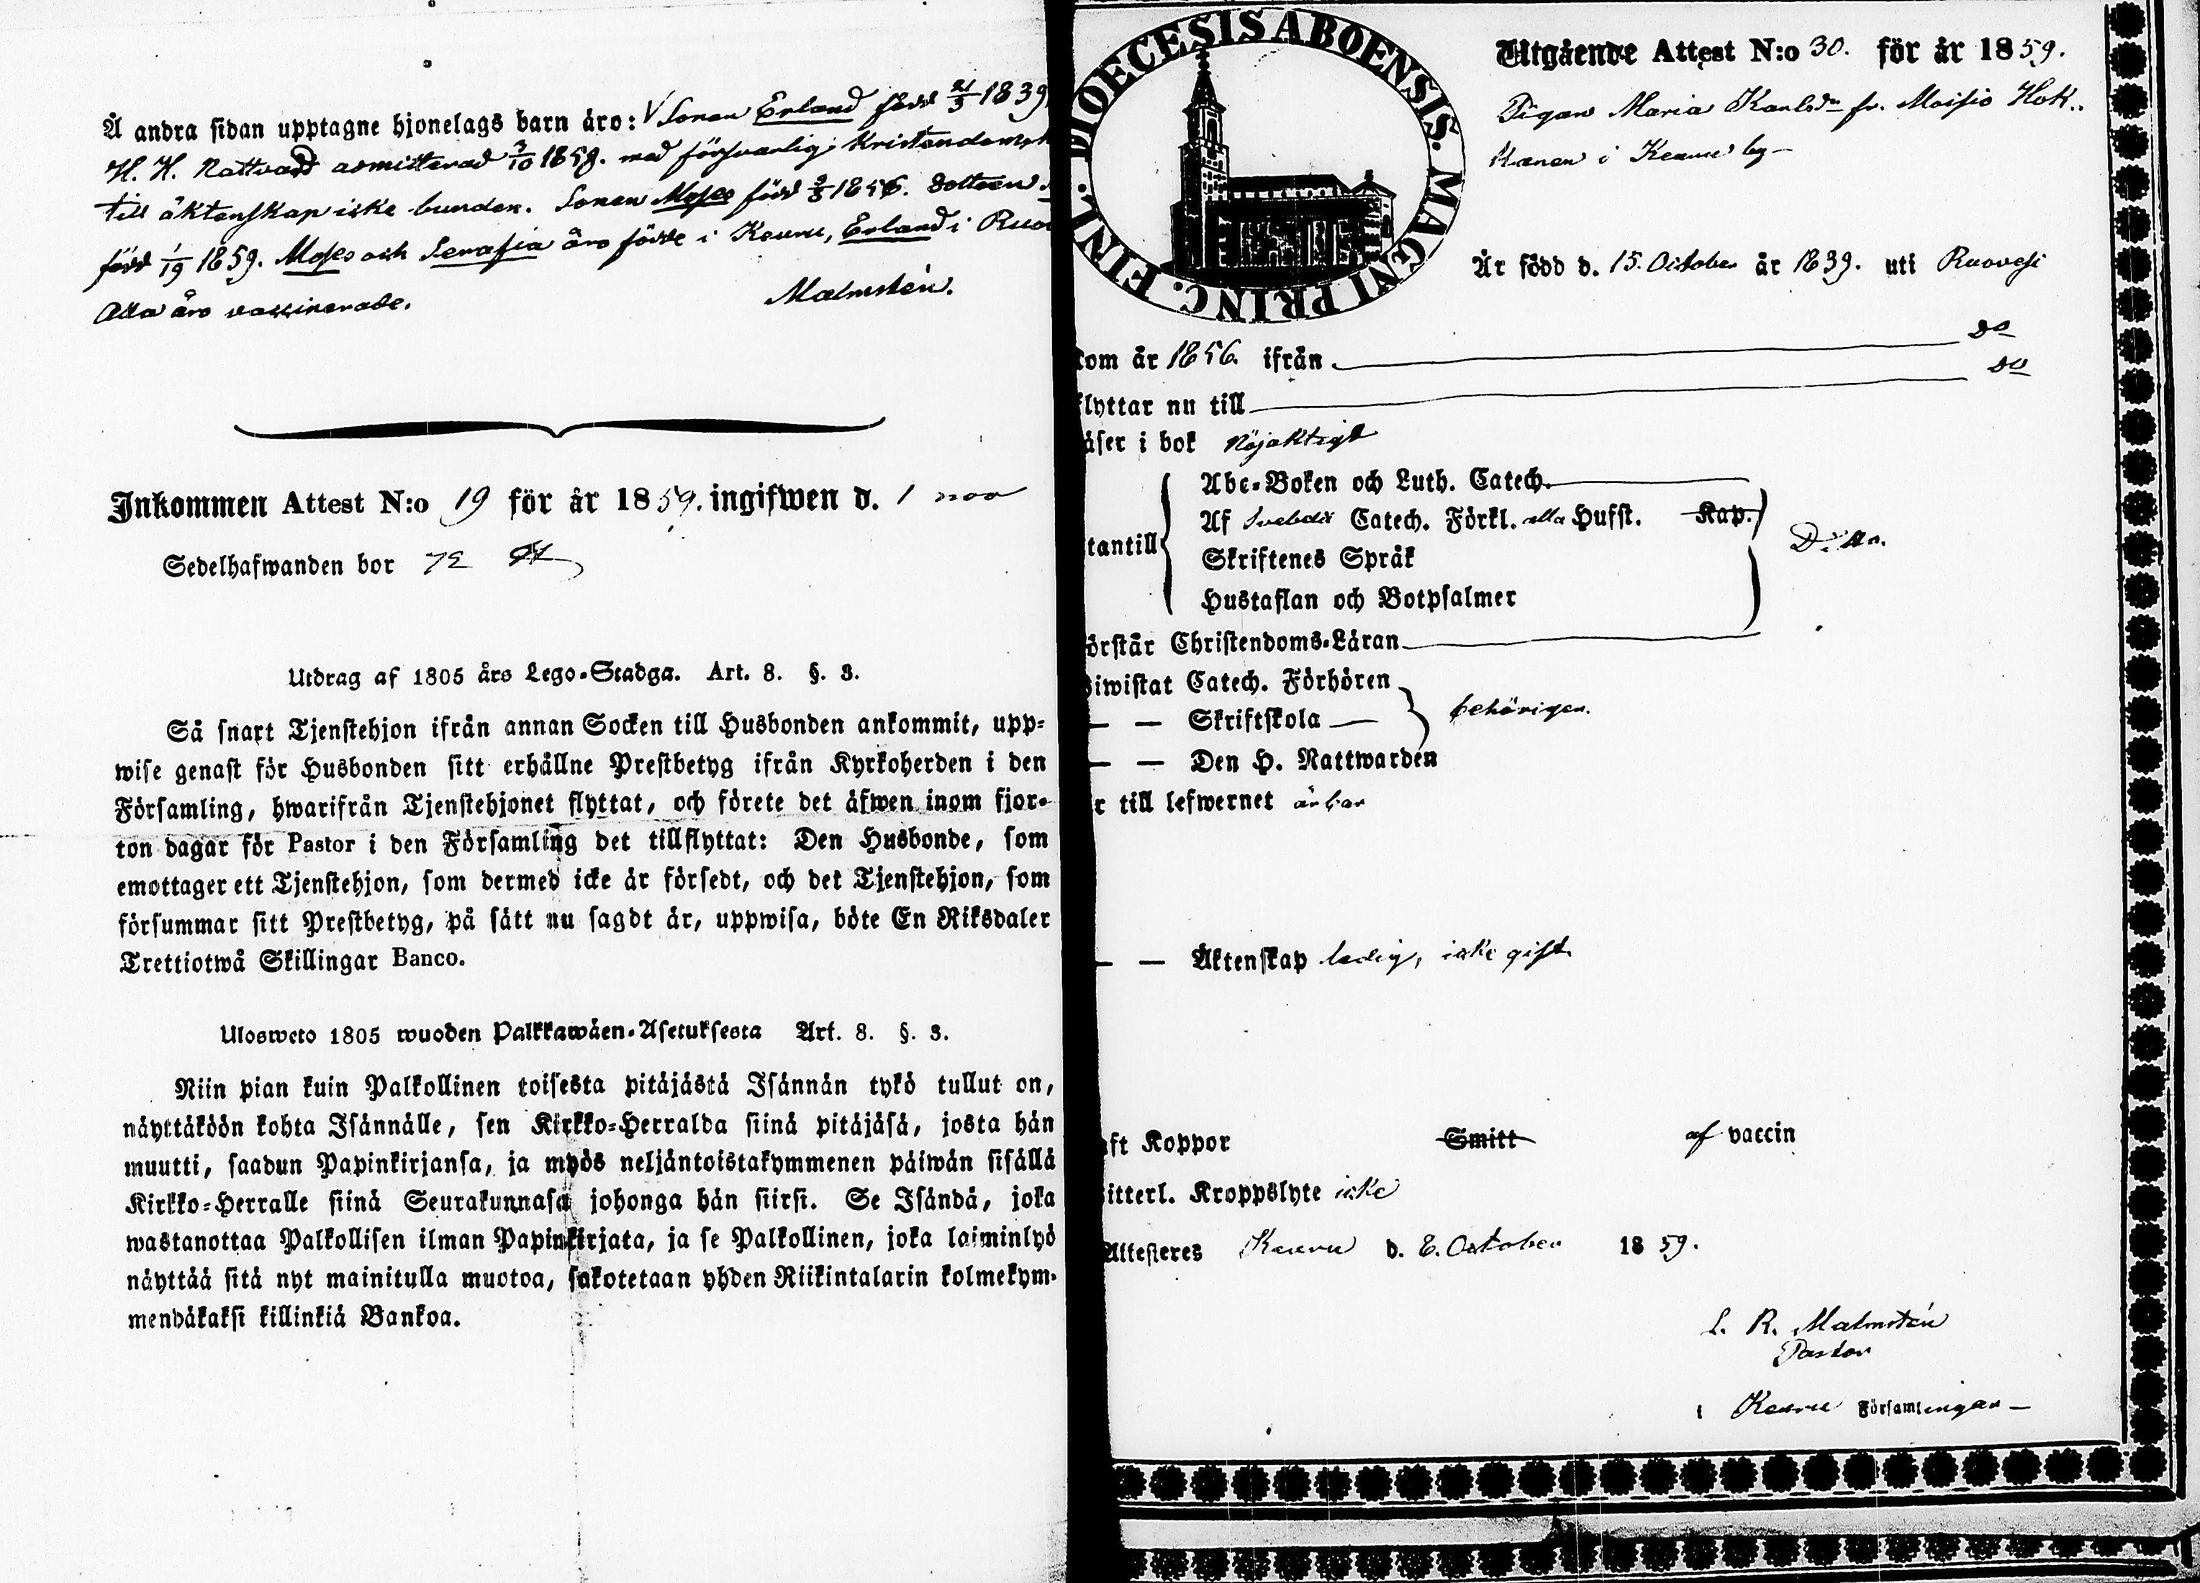 Å andra sidan upptagne hjonelags barn äro: V Sonen Erland född 21/3 1839
H. H. Nattvard admitterad 2/10 1859. med försvarlig Kristendomsk
till äktenskap icke bunden. Sonen Moses född 1856. dottren
född 1/9 1859. Moses och Serafia äro födde i Keuru, Erland i Ruov
Alla äro vaccinerade. Malmstén.
Inkommen Attest N:o 19 för år 1859. ingifwen d. 1 nov
Sedelhafwanden bor 72
Utdrag af 1805 års Lego-Stadga. Art. 8. §. 3.
Så snart Tjenstehjon ifrån annan Socken till Husbonden ankommit, upp-
wise genast för Husbonden sitt erhållne Prestbetyg ifrån Kyrkoherden i den
Församling, hwarifrån Tjenstehjonet flyttat, och förete det äfwen inom fjor-
ton dagar för Pastor i den Församling det tillflyttat: Den Husbonde, som
emottager ett Tjenstehjon, som dermed icke är försedt, och det Tjenstehjon, som
försummar sitt Prestbetyg, på sätt nu sagdt är, uppwisa, böte En Riksdaler
Trettiotwå Skillingar Banco.
Ulosweto 1805 wuoden Palkkawäen-Asetuksesta Art. 8. §. 3.
Niin pian kuin Palkollinen toisesta pitäjästä Isännän tykö tullut on,
näyttäköön kohta Isännälle, sen Kirkko-Herralda siinä pitäjäsä, josta hän
muutti, saadun Papinkirjansa, ja myös neljäntoistakymmenen päiwän sisällä
Kirkko-Herralle siinä Seurakunnasa johonga hän siirsi. Se Isändä, joka
wastanottaa Palkollisen ilman Papinkirjata, ja se Palkollinen, joka laiminlyö
näyttää sitä nyt mainitulla muotoa, sakotetaan yhden Riikintalarin kolmekym-
mendäkaksi killinkiä Bankoa.
DIOECESIS ABOENSIS. MAGNI PRINC. FINL.
Utgående Attest N:o 30. för år 1859.
Pigan Maria Karlsdr fr. Moisio Hok..
kanen i Keuru by
Är född d. 15. October år 1839. uti Ruovesi
kom år 1856. ifrån do
flyttar nu till do
äser i bok nöjaktigt
Abc-Boken och Luth. Catech.
Af Svebelii Catech. Förkl. alla Husst. Kap.
tantill Ditto.
Skriftenes Språk
Hustaflan och Botpsalmer
örstår Christendoms-Läran
iwistat Catech. Förhören
— — Skriftskola — behörigen.
— — Den H. Nattwarden
r till lefwernet ärbar
— — Äktenskap ledig, icke gift
ft Koppor Smitt af vaccin
itterl. Kroppslyte icke
Attesteres Keuru d. 6. October 1859.
L. R. Malmstén
Pastor
i Keuru Församlingar